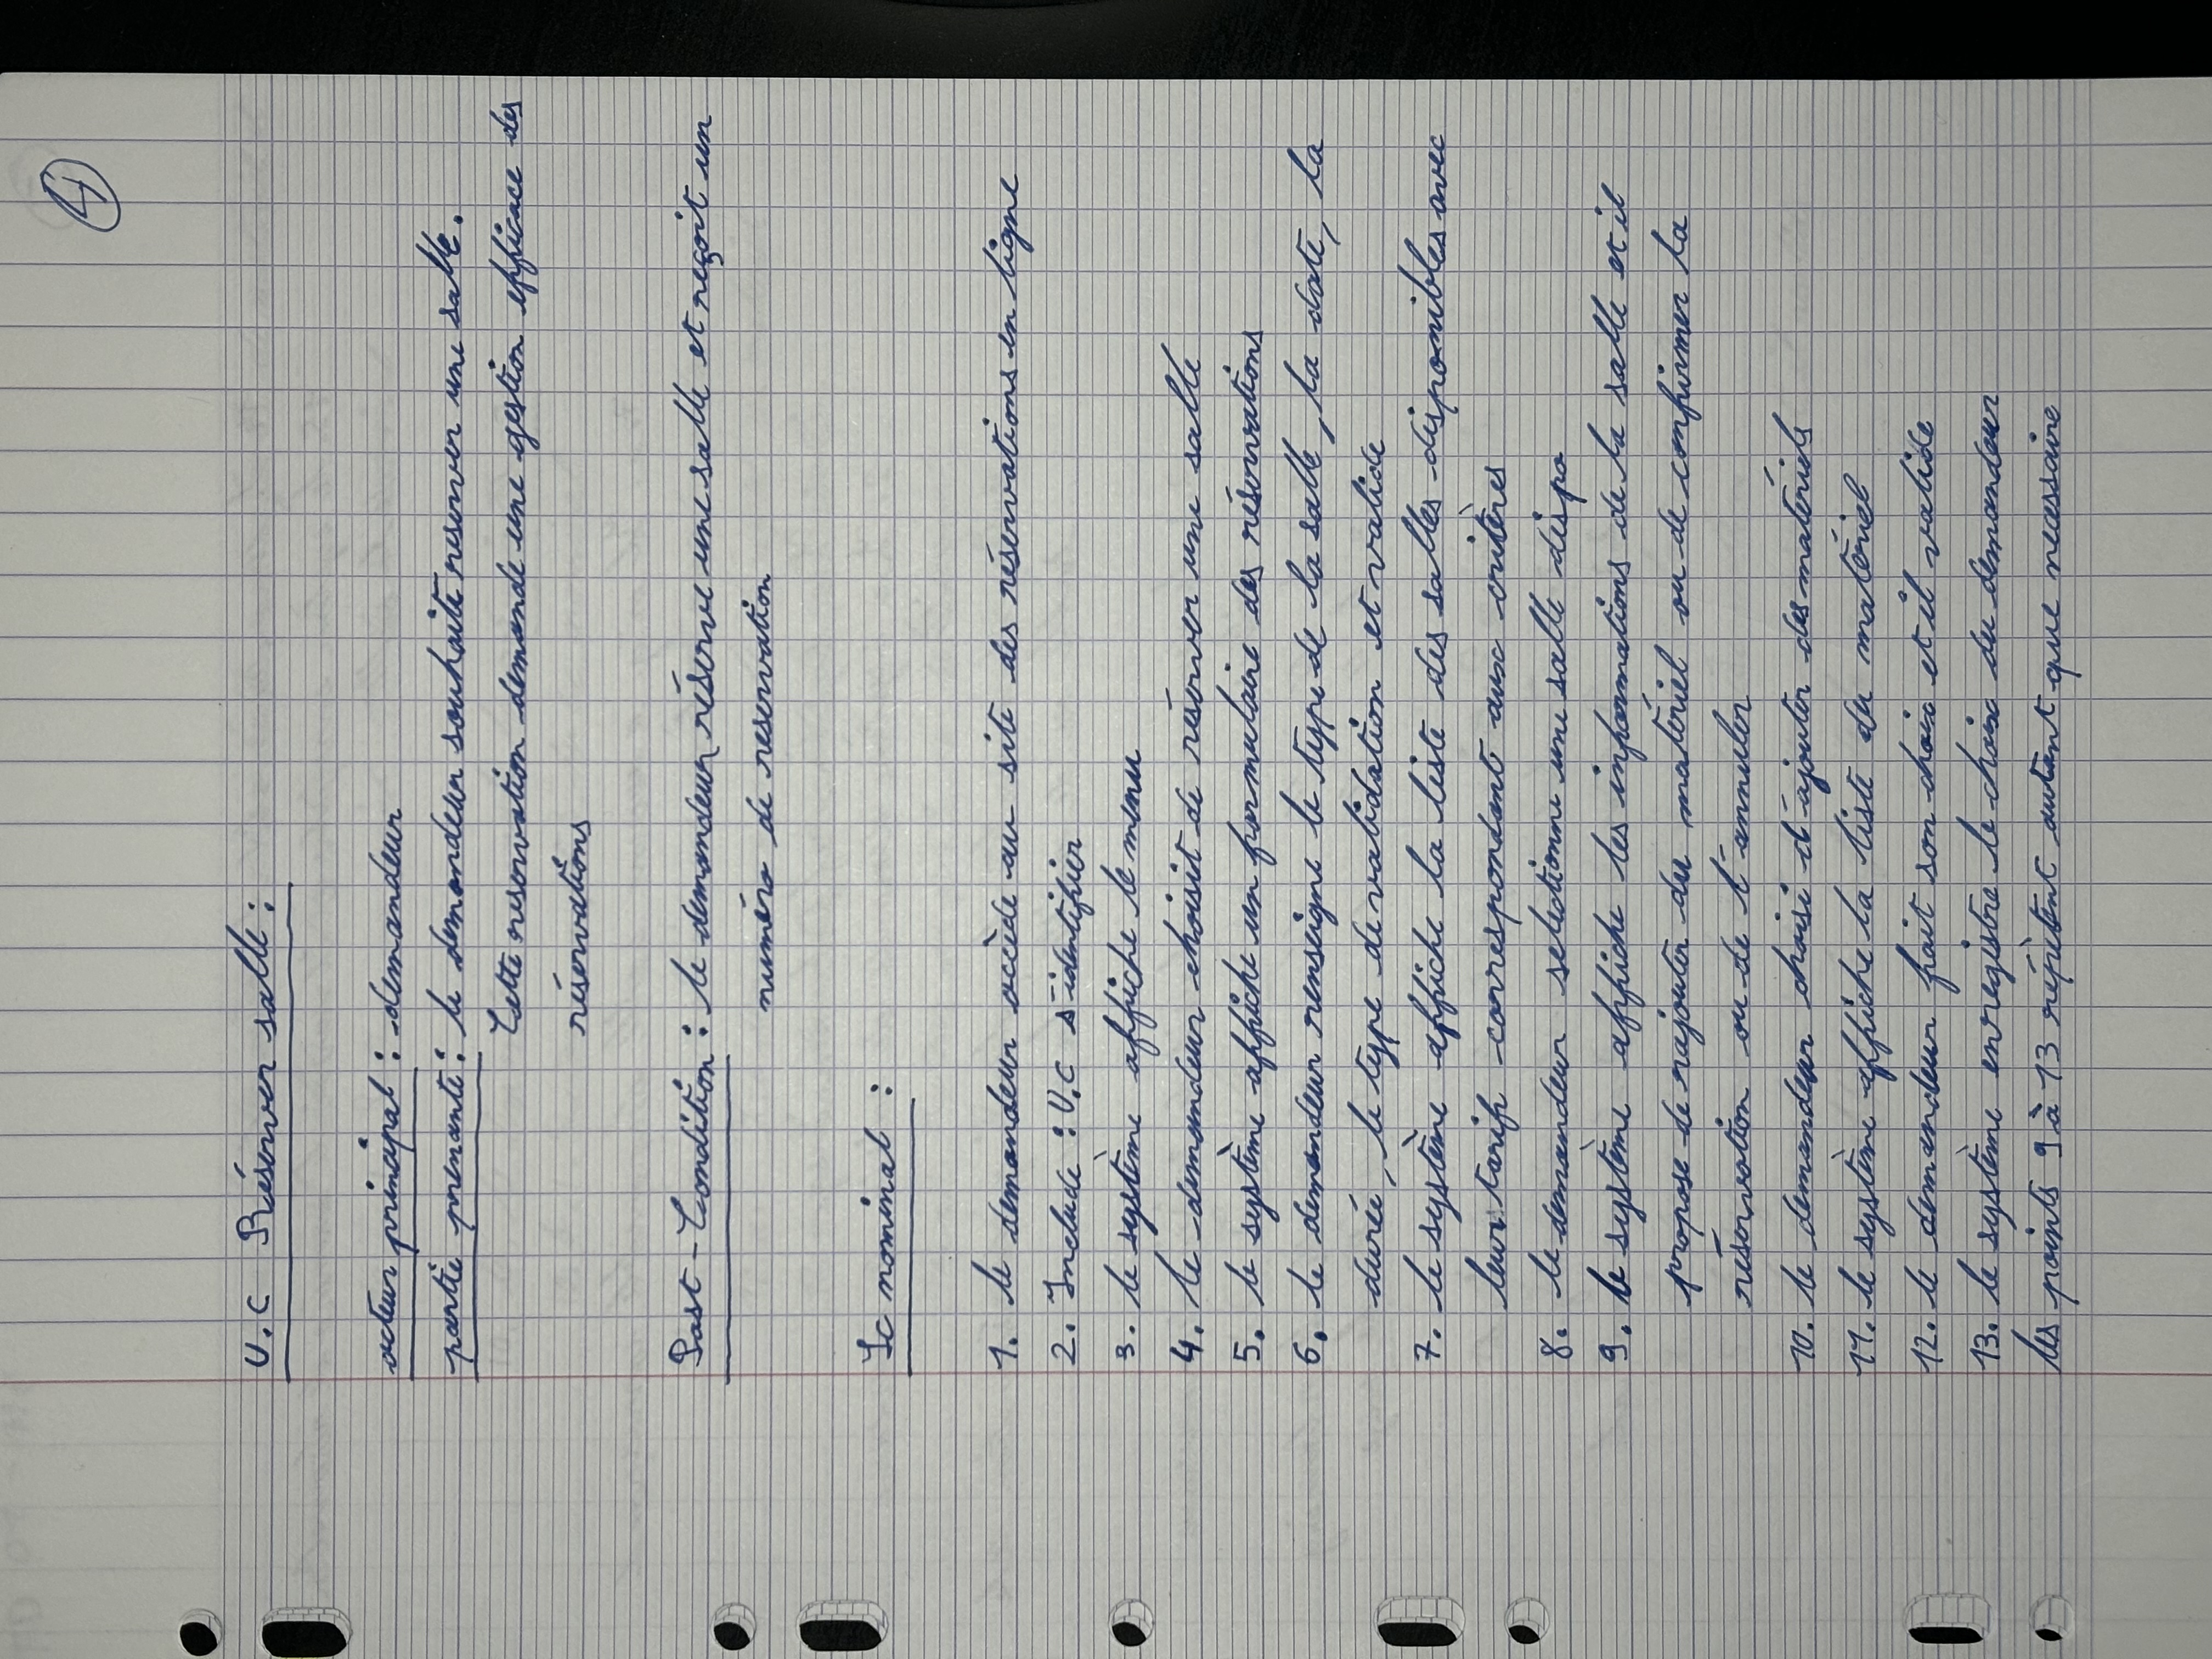 4
U.C Réserver salle :
acteur principal : demandeur
partie prenante : le demandeur souhaite reserver une salle.
Cette reservation demande une gestion efficace des
réservations
Post-Condition : le demandeur réserve une salle et reçoit un
numéro de reservation
Sc nominal :
1. le demandeur accède au site des réservations en ligne
2. Include : U.C s'identifier
3. le système affiche le menu
4. le demandeur choisit de réserver une salle
5. le système affiche un formulaire des réservations
6. le demandeur renseigne le type de la salle, la date, la
durée, le type de validation et valide
7. le système affiche la liste des salles disponibles avec
leur tarif correspondant aux critères
8. le demandeur selectionne une salle dispo
9. le système affiche les informations de la salle et il
propose de rajouter du matériel ou de confirmer la
réservation ou de l'annuler
10. le demandeur choisi d'ajouter des matériels
11. le système affiche la liste du matériel
12. le demandeur fait son choix et il valide
13. le système enregistre le choix du demandeur
les points 9 à 13 répètent autant que necessaire